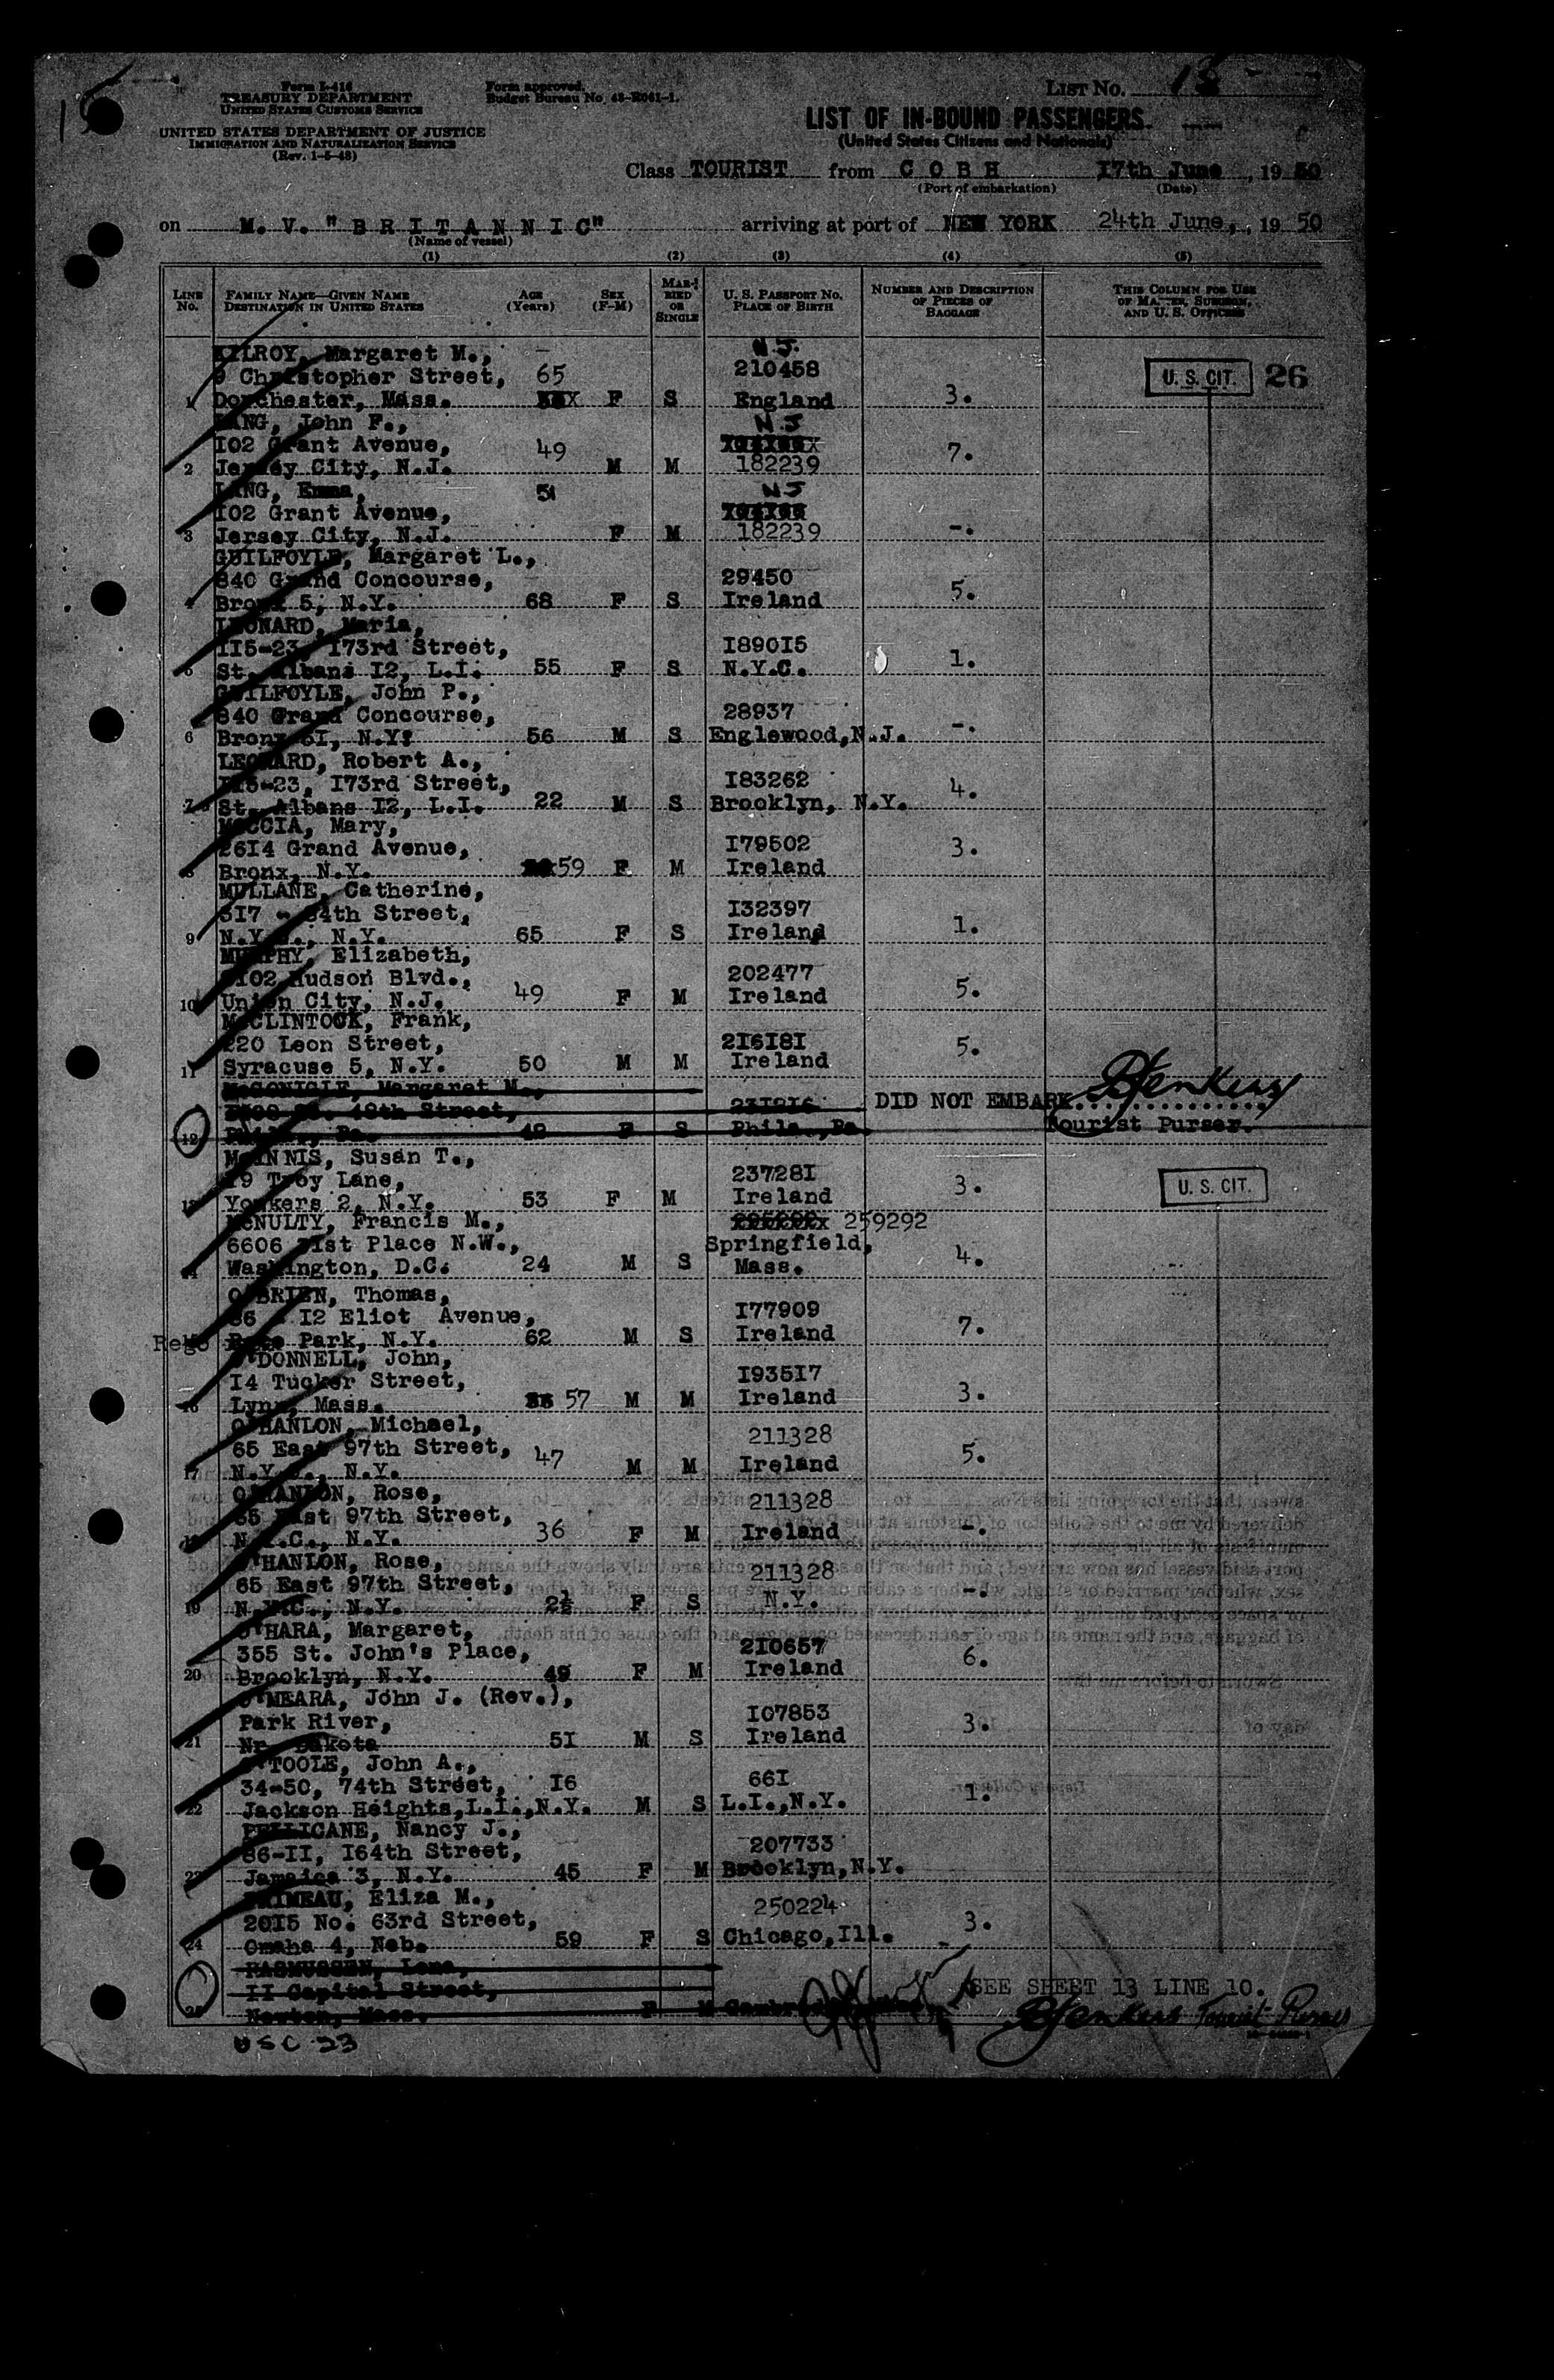 Form I-416
TREASURY DEPARTMENT
UNITED STATES CUSTOMS SERVICE
UNITED STATES DEPARTMENT OF JUSTICE
IMMIGRATION AND NATURALIZATION SERVICE
(Rev. 1-5-48)
Form approved.
Budget Bureau No. 43-R061-1.
LIST NO. 18
LIST OF IN-BOUND PASSENGERS
(United States Citizens and Nationals)
Class TOURIST from C O B H 17th June, 19 50
(Port of embarkation) (Date)
on M. V. "B R I T A N N I C" arriving at port of NEW YORK 24th June, 19 50
(Name of vessel)
(1) (2) (3) (4) (5)
LINE NO. FAMILY NAME—GIVEN NAME DESTINATION IN UNITED STATES AGE (Years) SEX (F-M) MARRIED OR SINGLE U. S. PASSPORT NO. PLACE OF BIRTH NUMBER AND DESCRIPTION OF PIECES OF BAGGAGE THIS COLUMN FOR USE OF MASTER, SURGEON, AND U. S. OFFICERS
KILROY, Margaret M., N.J.
9 Christopher Street, 65 210458 U. S. CIT. 26
1 Dorchester, Mass. F S England 3.
LANG, John F., N.J
102 Grant Avenue, 49 7.
2 Jersey City, N.J. M M 182239
LANG, Emma, 51 NJ
102 Grant Avenue,
3 Jersey City, N.J. F M 182239 -.
GUILFOYLE, Margaret L.,
840 Grand Concourse, 29450
4 Bronx 5, N.Y. 68 F S Ireland 5.
LEONARD, Maria,
115-23, 173rd Street, 189015
5 St. Albans 12, L.I. 55 F S N.Y.C. 1.
GUILFOYLE, John P.,
840 Grand Concourse, 28937
6 Bronx 51, N.Y. 56 M S Englewood, N.J. -.
LEONARD, Robert A.,
115-23, 173rd Street, 183262
7 St. Albans 12, L.I. 22 M S Brooklyn, N.Y. 4.
MOCCIA, Mary,
2614 Grand Avenue, 179502 3.
8 Bronx, N.Y. 59 F M Ireland
MULLANE, Catherine,
317 - 84th Street, 132397
9 N.Y.C., N.Y. 65 F S Ireland 1.
MURPHY, Elizabeth,
Hudson Blvd., 202477
10 Union City, N.J. 49 F M Ireland 5.
McCLINTOCK, Frank,
220 Leon Street, 216181
11 Syracuse 5, N.Y. 50 M M Ireland 5.
McGONIGLE, Margaret M.,
48th Street, 231216 DID NOT EMBARK. Jenkins
12 Phila., Pa. 48 F S Phila., Pa. Tourist Purser.
McINNIS, Susan T.,
19 Troy Lane, 237281
13 Yonkers 2, N.Y. 53 F M Ireland 3. U. S. CIT.
McNULTY, Francis M., 259292
6606 31st Place N.W., Springfield,
14 Washington, D.C. 24 M S Mass. 4.
O'BRIEN, Thomas,
86 - 12 Eliot Avenue, 177909
Rego Park, N.Y. 62 M S Ireland 7.
O'DONNELL, John,
14 Tucker Street, 193517
16 Lynn, Mass. 57 M M Ireland 3.
O'HANLON, Michael, 211328
65 East 97th Street, 47
17 N.Y.C., N.Y. M M Ireland 5.
O'HANLON, Rose, 211328
65 East 97th Street, 36
18 N.Y.C., N.Y. F M Ireland -.
O'HANLON, Rose, 211328
65 East 97th Street,
19 N.Y.C., N.Y. 2½ F S N.Y. -.
O'HARA, Margaret,
355 St. John's Place, 210657
20 Brooklyn, N.Y. 49 F M Ireland 6.
O'MEARA, John J. (Rev.),
Park River, 107853
21 Nr. Dakota 51 M S Ireland 3.
O'TOOLE, John A.,
34-50, 74th Street, 16 661
22 Jackson Heights, L.I., N.Y. M S L.I., N.Y. 1.
PELLICANE, Nancy J.,
86-11, 164th Street, 207733
23 Jamaica 3, N.Y. 45 F M Brooklyn, N.Y.
PRIMEAU, Eliza M.,
2015 No. 63rd Street, 250224
24 Omaha 4, Neb. 59 F S Chicago, Ill. 3.
RASMUSSEN, Lena,
11 Capital Street, SEE SHEET 13 LINE 10.
25 Newton, Mass. F M Jenkins Tourist Purser
USC 23